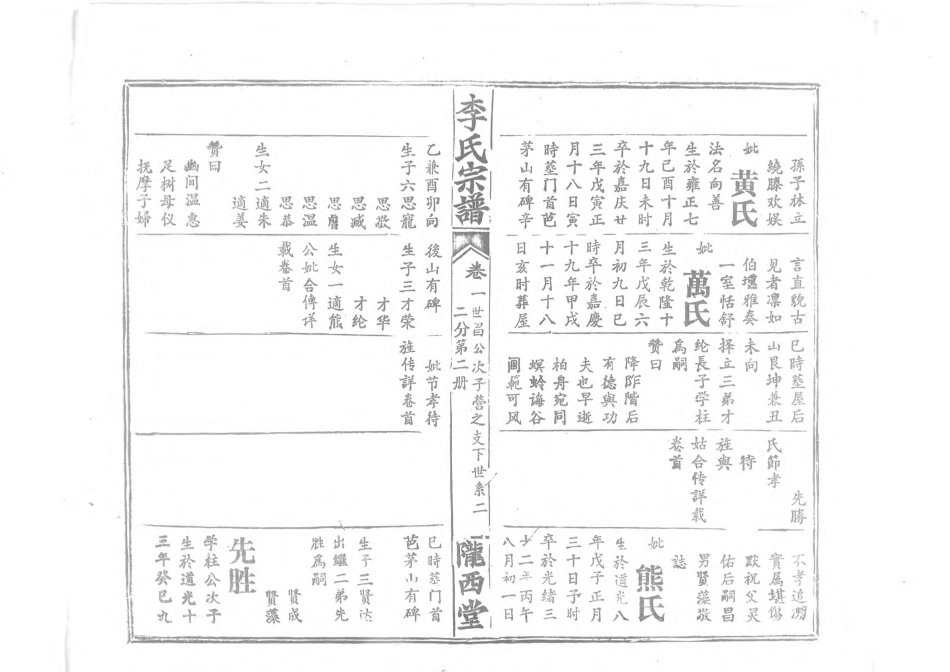 孫子林立
繞膝欢娱
妣
黄氏
法名向善
生於雍正七
年己酉十月
十九日未时
卒於嘉庆廿
三年戊寅正
月十八日寅
時塟门首芭
茅山有碑辛
言直貌古
见者凛如
伯壎雅奏
一室恬舒
妣
萬氏
生於乾隆十
三年戊辰六
月初九日巳
時卒於嘉慶
十九年甲戌
十一月十八
日亥时葬屋
巳時塟屋后
山艮坤兼丑
未向
择立三弟才
纶長子学柱
爲嗣
贊曰
降阼階后
有德與功
夫也早逝
柏舟宛同
螟蛉诲谷
阃範可风
先勝
氏節孝
待
旌與
姑合传詳载
卷首
不孝追溯
實属堪伤
默祝父灵
佑后嗣昌
男賢藻敬
誌
妣
熊氏
生於道光八
年戊子正月
三十日子时
卒於光绪三
十二年丙午
八月初一日
李氏宗譜
卷一
世昌公次子營之支下世系二
二分第二册
隴西堂
乙兼酉卯向
生子六思寵
思敬
思臧
思睿
思温
思恭
生女二適朱
適姜
贊曰
幽间温惠
足树母仪
抚摩子婦
後山有碑
生子三才荣
才华
才纶
生女一適熊
公妣合傳详
載卷首
妣节孝待
旌传詳卷首
巳時塟门首
芭茅山有碑
生子三賢达
出繼二弟先
胜爲嗣
賢成
賢藻
先胜
学柱公次子
生於道光十
三年癸巳九